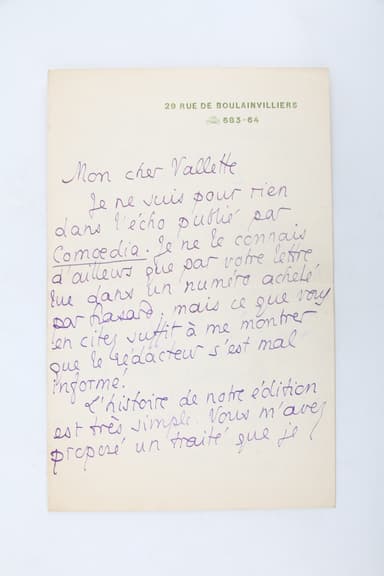 29 RUE DE BOULAINVILLIERS
683-64
Mon cher Vallette
Je ne suis pour rien
dans l'écho publié par
Comœdia. Je ne le connais
d'ailleurs que par votre lettre
lue dans un numéro acheté
par hasard, mais ce que vous
en citez suffit à me montrer
que le rédacteur s'est mal
informé.
L'histoire de notre édition
est très simple. Vous m'avez
proposé un traité que je